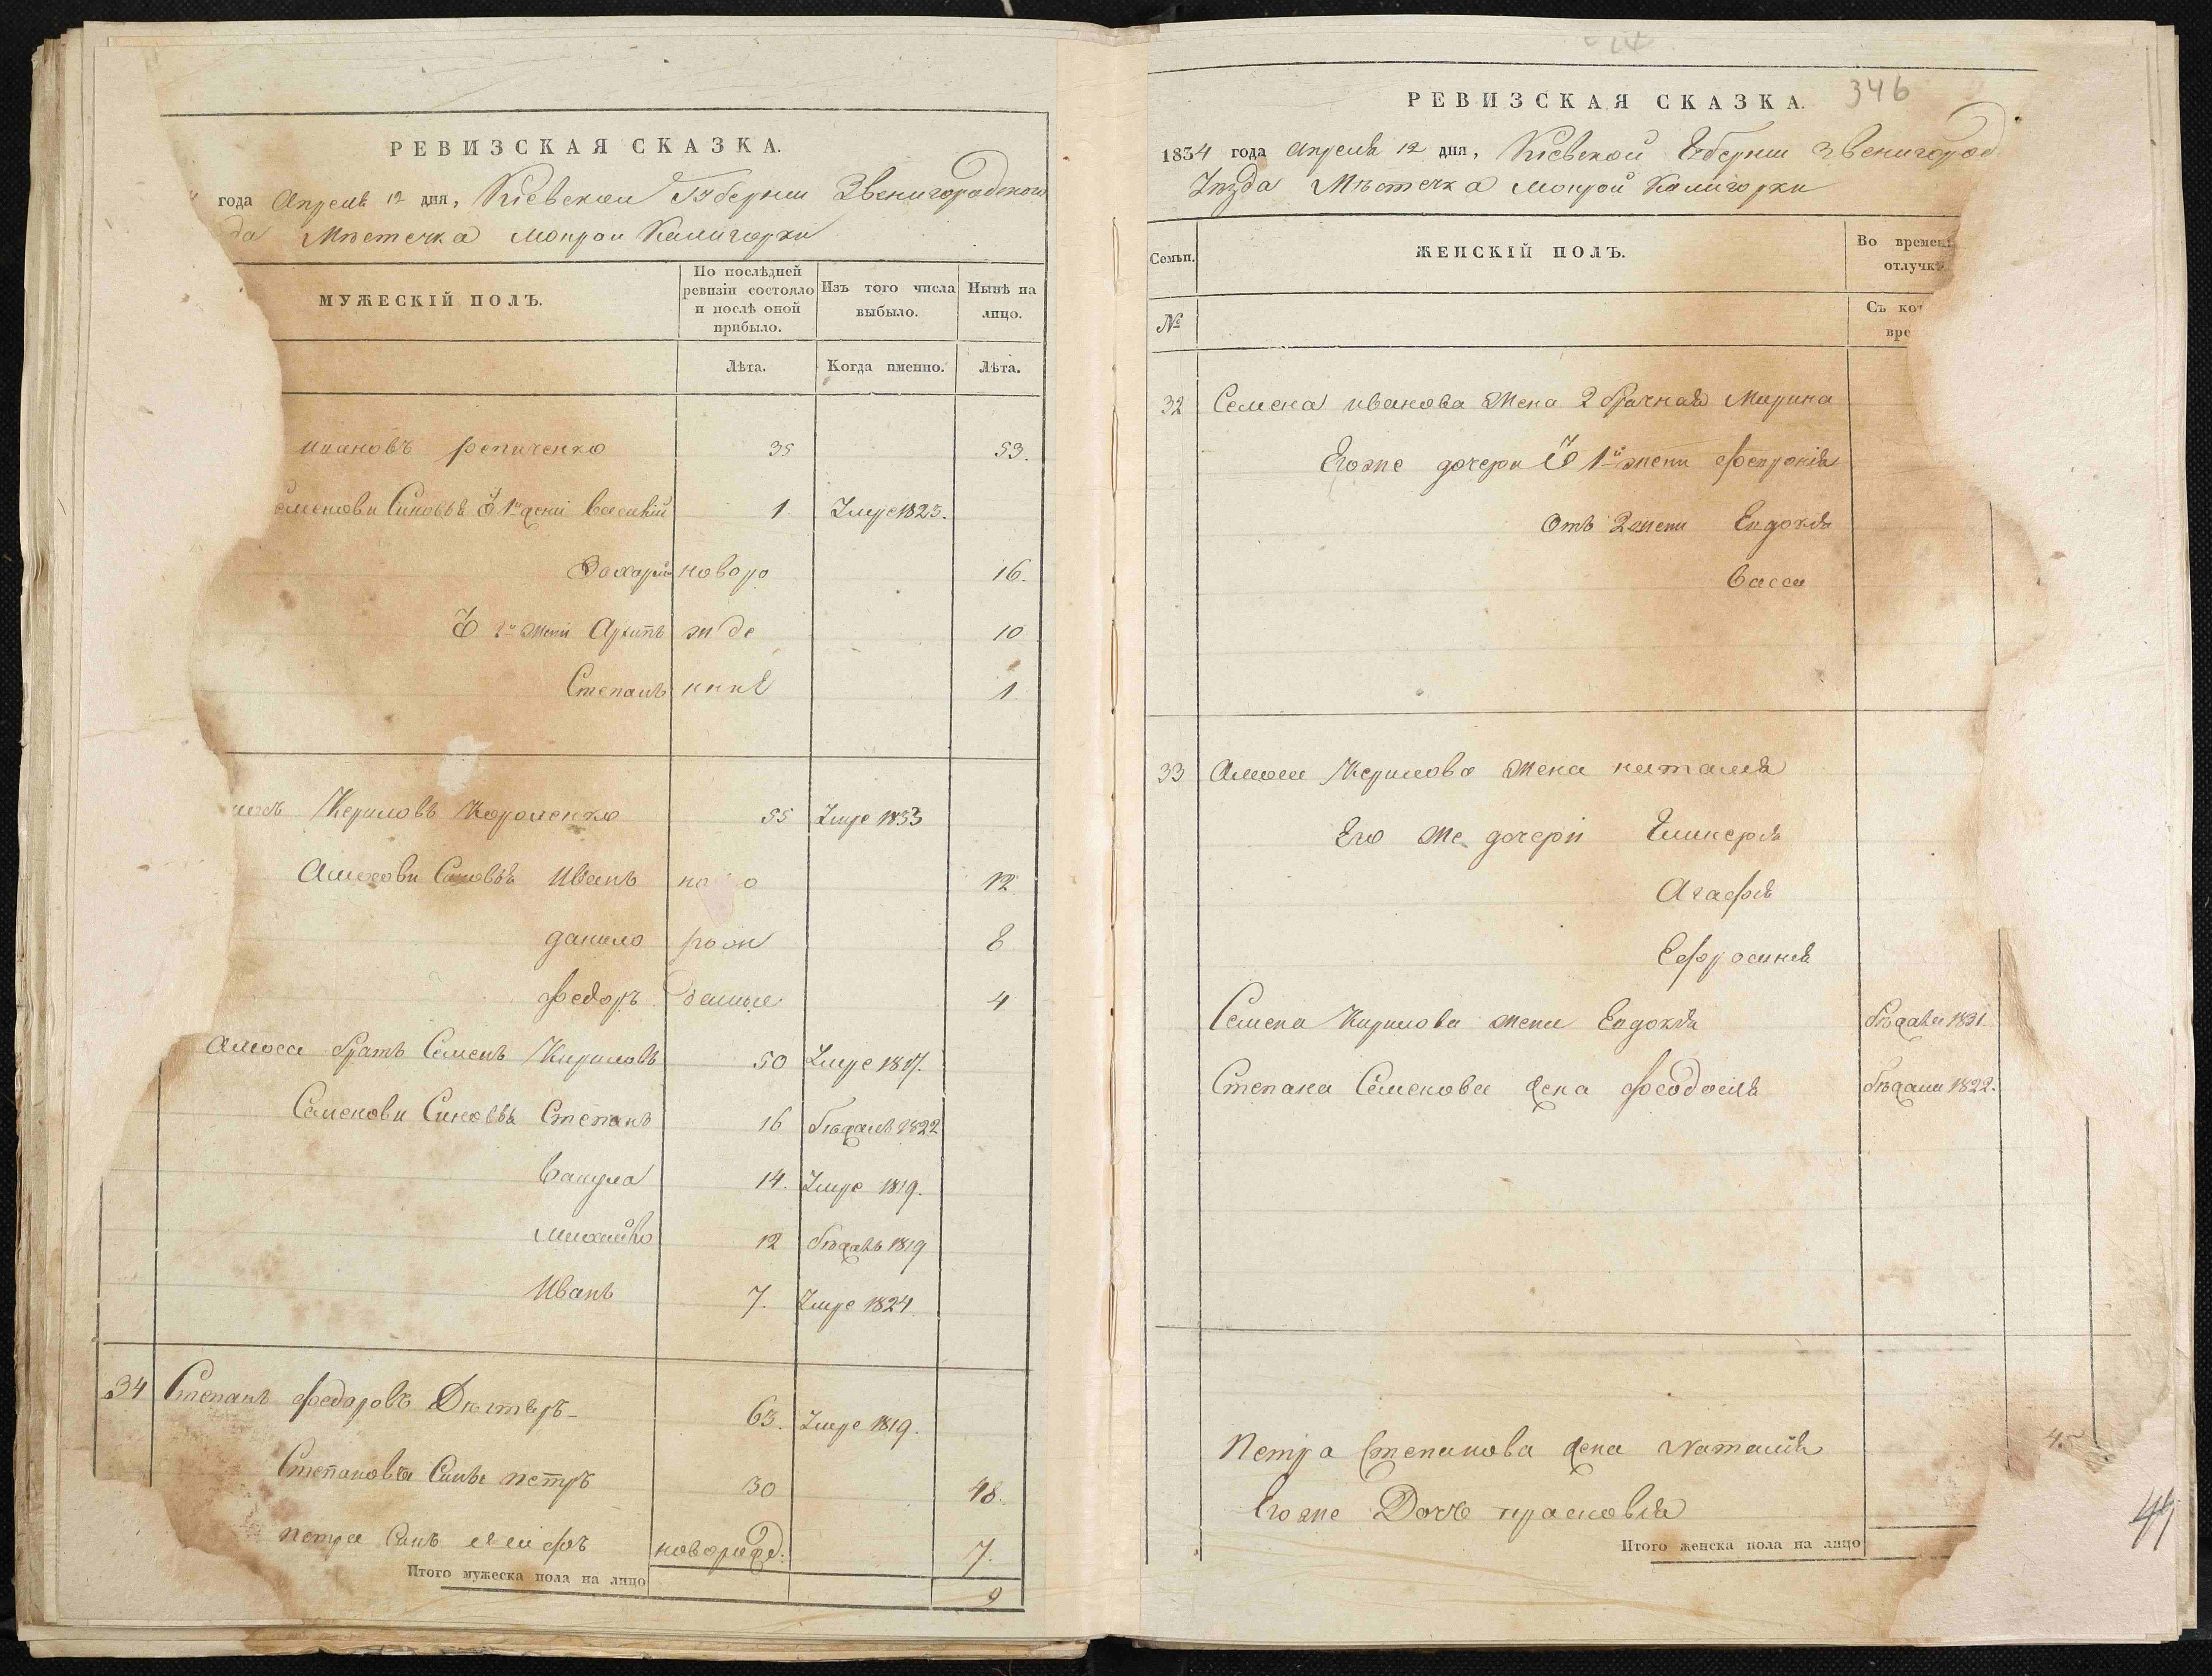 РЕВИЗСКАЯ СКАЗКА.
года Апреля 12 дня, Кіевской Губерніи Звенигородского
да Мѣстечка Мокрой Калигорки
МУЖЕСКІЙ ПОЛЪ.
По послѣдней ревизіи состояло и послѣ оной прибыло.
Изъ того числа выбыло.
Нынѣ на лицо.
Лѣта.
Когда именно.
Лѣта.
Ивановъ Репиченко 35 53.
Семенови Синовья 1й жени Василій 1 Умре 1823.
Захарій новоро 16.
2й жени Архипъ жде 10
Степанъ нниѣ 1
Кериловъ Короленко 55 Умре 1833
Амосови Синовья Иванъ но о 12
данило рож 8
Федоръ данные 4
Амоса братъ Семенъ Кириловъ 50 Умре 1817.
Семенови Синовья Степанъ 16 бѣжалъ 1822
Вакула 14. Умре 1819.
Михайло 12 бѣжалъ 1819
Иванъ 7. Умре 1824.
34 Степанъ Федоровъ 63. Умре 1819.
Степановъ Синъ петръ 30 48.
петра Синъ новорожд: 7.
Итого мужеска пола на лицо 9
346
РЕВИЗСКАЯ СКАЗКА.
1834 года Апреля 12 дня, Кіевской Губерніи Звенигород
Уѣзда Мѣстечка Мокрой Калигорки
Семьи.
ЖЕНСКІЙ ПОЛЪ.
Во времен
отлучкѣ
№
Съ кот
вре
32 Семена иванова жена 2 брачная Марина
Егоже дочери 1й жени Февронія
Отъ 2 жени Евдокія
Васса
33 Амоса Керилова жена наталія
Его же дочери Гликерія
Агафія
Ефросинія
Семена Кирилова жена Евдокія бѣжала 1831
Степана Семенова жена Феодосія бѣжала 1822.
Петра Степанова жена Наталія
Егоже Дочь прасковія
Итого женска пола на лицо